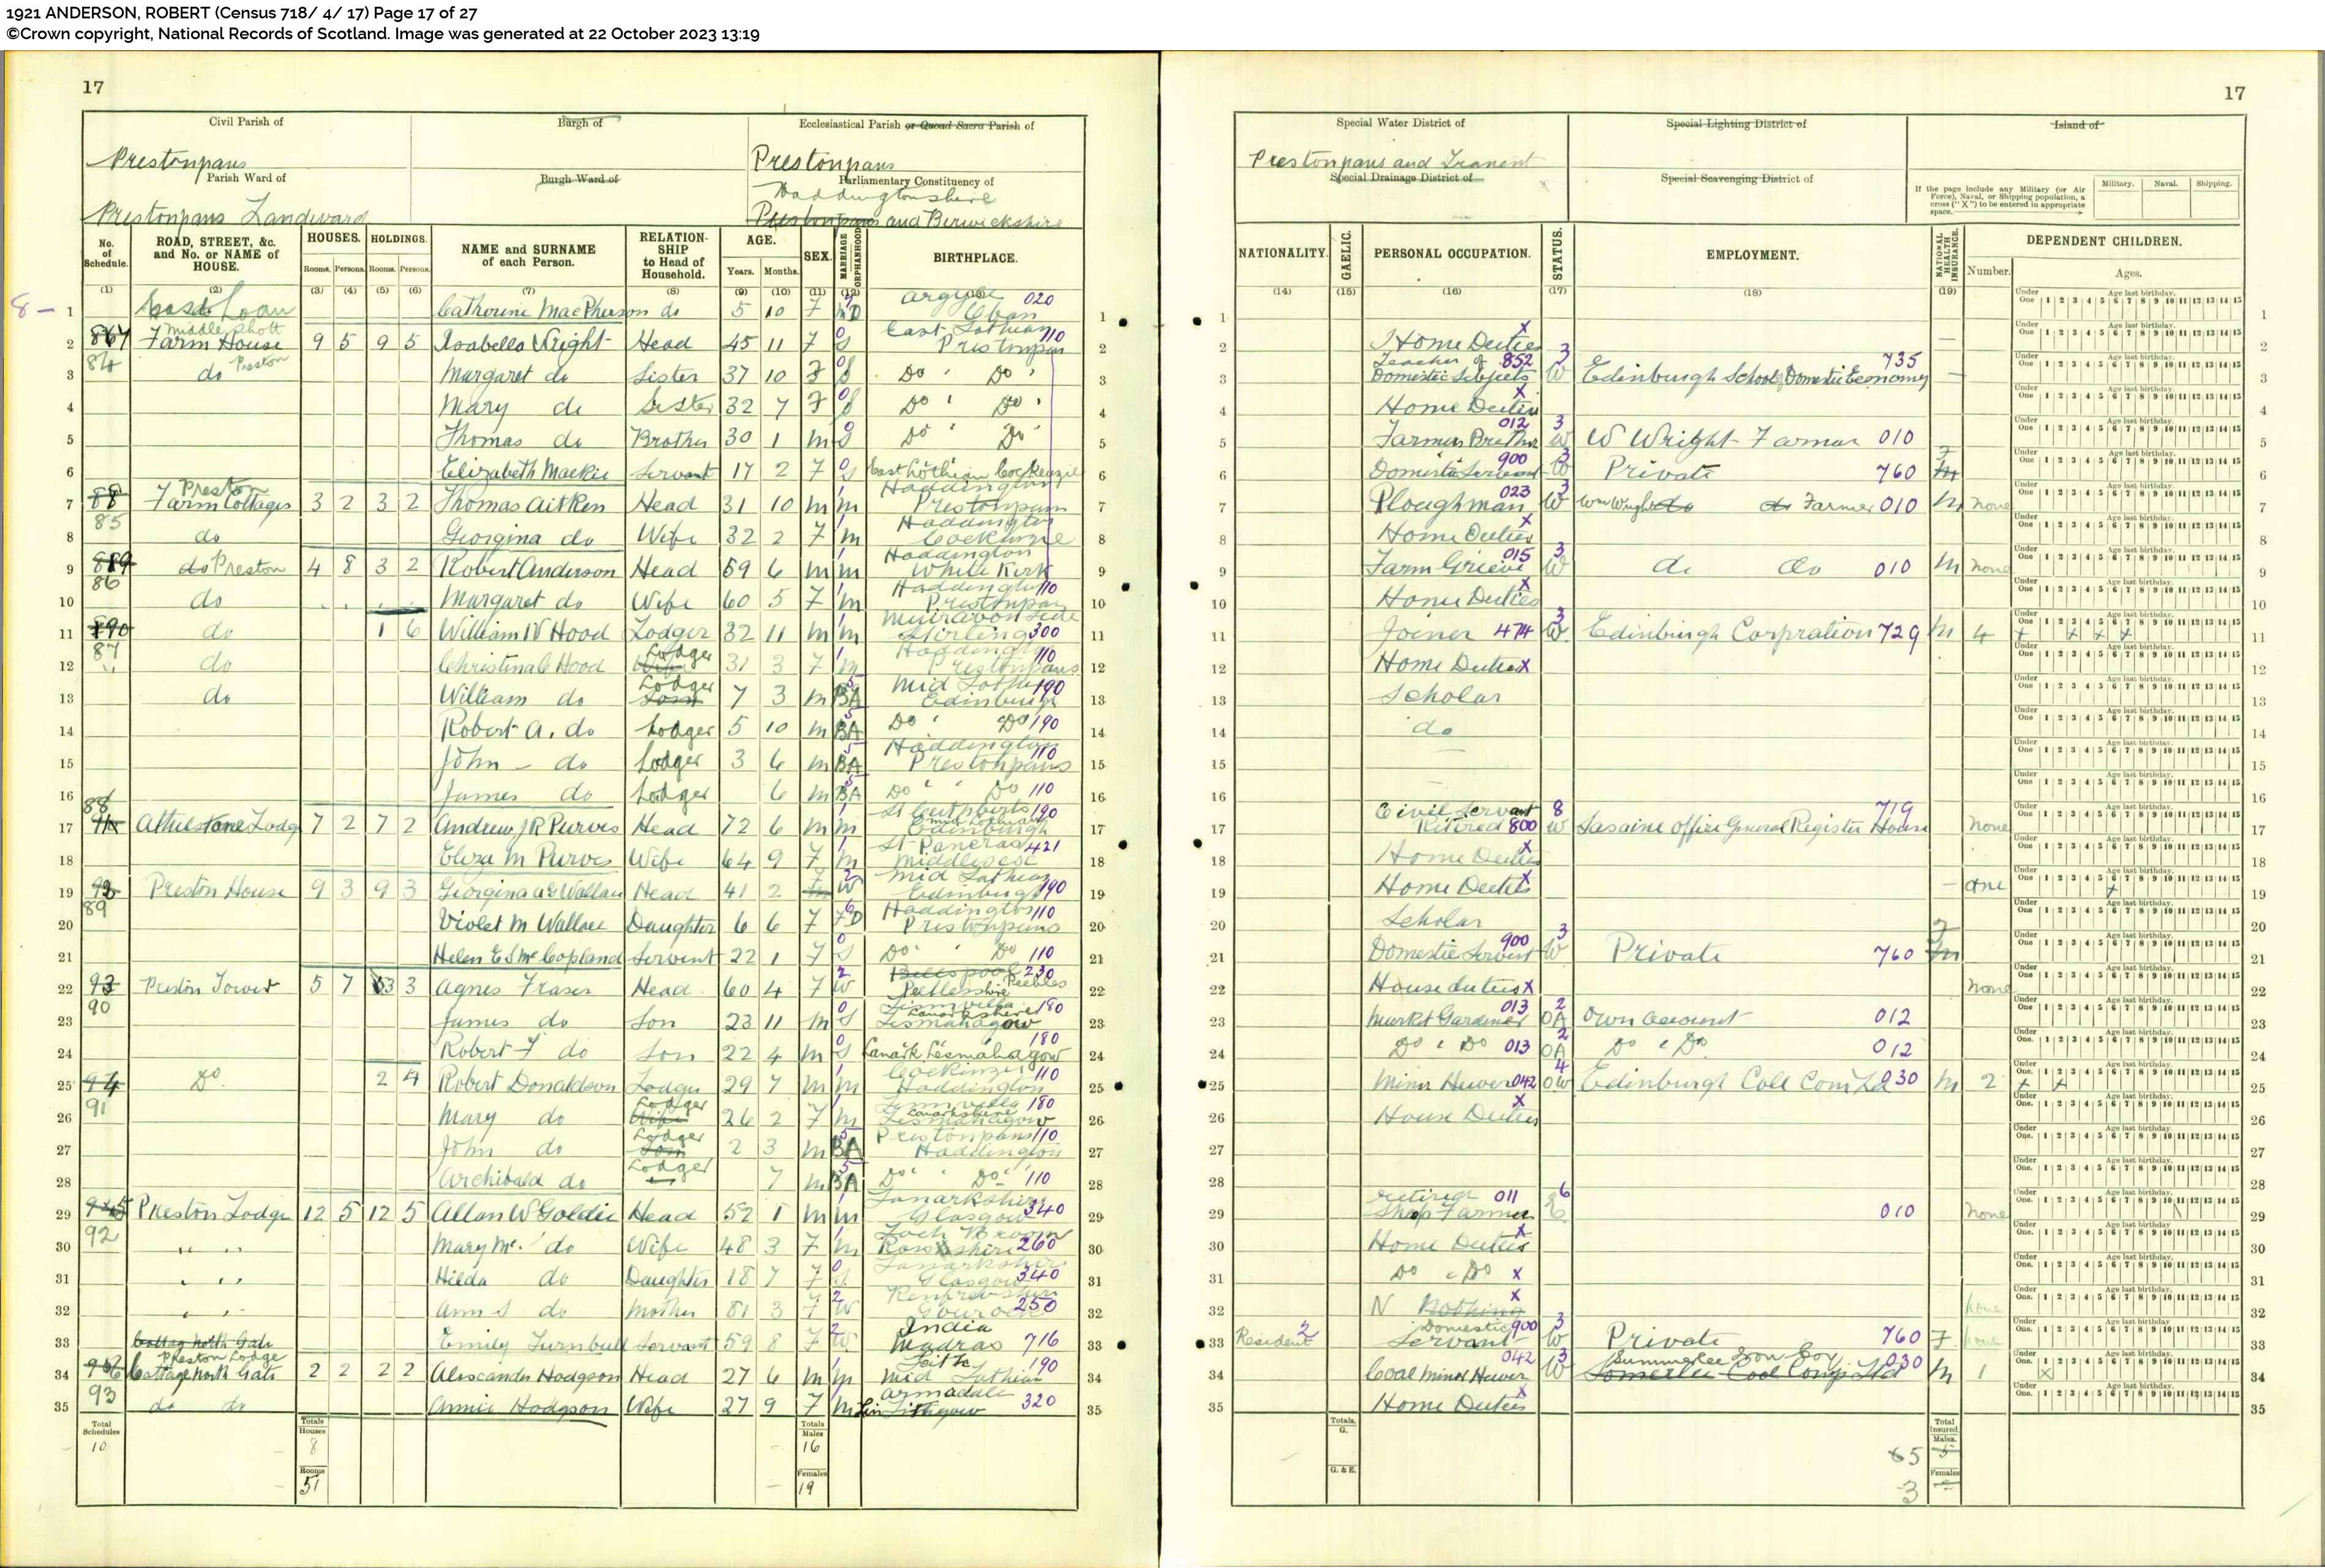 1921 ANDERSON, ROBERT (Census 718/ 4/ 17) Page 17 of 27
©Crown copyright, National Records of Scotland. Image was generated at 22 October 2023 13:19
17
17
Civil Parish of Burgh of Ecclesiastical Parish or Quoad Sacra Parish of
Prestonpans Prestonpans
Parish Ward of Burgh Ward of Parliamentary Constituency of
Haddingtonshire
Prestonpans Landward Prestonpans and Berwickshire
Special Water District of Special Lighting District of Island of
Prestonpans and Tranent
Special Drainage District of Special Scavenging District of
If the page include any Military (or Air Force), Naval, or Shipping population, a cross ("X") to be entered in appropriate space. Military. Naval. Shipping.
No. of Schedule. ROAD, STREET, &c. and No. or NAME of HOUSE. HOUSES. HOLDINGS. NAME and SURNAME of each Person. RELATIONSHIP to Head of Household. AGE. SEX. MARRIAGE ORPHANHOOD BIRTHPLACE.
Rooms. Persons. Rooms. Persons. Years. Months.
(1) (2) (3) (4) (5) (6) (7) (8) (9) (10) (11) (12)
NATIONALITY. GAELIC. PERSONAL OCCUPATION. STATUS. EMPLOYMENT. NATIONAL HEALTH INSURANCE. DEPENDENT CHILDREN.
Number. Ages.
(14) (15) (16) (17) (18) (19)
8 – 1 Loan Catherine MacPherson do 5 10 F Argyle Oban 020
2 Middle Shott Farm House 9 5 9 5 Isabella Wright Head 45 11 F S East Lothian Prestonpan 110 Home Duties X
84
3 do Preston Margaret do Sister 37 10 F S Do Do Teacher of Domestic Subjects 852 W Edinburgh School Domestic Economy 735
4 Mary do Sister 32 7 F S Do Do Home Duties X
5 Thomas do Brother 30 1 M S Do Do Farmers Brother 012 W W Wright Farmer 010
6 Elizabeth Mackie Servant 17 2 F S East Lothian Cockenzie Domestic Servant 900 W Private 760
7 88 Preston Farm Cottages 3 2 3 2 Thomas Aitken Head 31 10 M M Haddington Prestonpans Ploughman 023 W Wm Wright do Farmer 010 M None
85
8 do Georgina do Wife 32 2 F M Haddington Cockenzie Home Duties X
9 do Preston 4 8 3 2 Robert Anderson Head 59 6 M M Haddington White Kirk Farm Grieve 015 W do do 010 M None
86
10 do Margaret do Wife 60 5 F M Haddington Prestonpan 110 Home Duties X
11 do 1 6 William W Hood Lodger 32 11 M M Muiravonside Stirling 300 Joiner 474 W Edinburgh Corpration 729 M 4
87
12 do Christina C Hood Wife Lodger 31 3 F M Haddington Prestonpans 110 Home Duties X
13 do William do Son Lodger 7 3 M BA Mid Lothian Edinburgh 190 Scholar
14 Robert A. do Lodger 5 10 M BA Do Do 190 do
15 John do Lodger 3 6 M BA Haddington Prestonpans 110
16 James do Lodger 6 M BA Do Do 110
88
17 Athelstane Lodge 7 2 7 2 Andrew J R Purves Head 72 6 M M St Cuthberts Mid Lothian Edinburgh 190 Civil Servant Retired 800 8 W Sasaine Office General Register House 719 None
18 Eliza M Purves Wife 64 9 F M St Pancras Middlesex 421 Home Duties X
19 Preston House 9 3 9 3 Georgina Wallace Head 41 2 F W Mid Lothian Edinburgh 190 Home Duties X one
89
20 Violet M Wallace Daughter 6 6 F FD Haddington Prestonpans 110 Scholar
21 Helen E S McCopland Servent 22 1 F S Do Do 110 Domestic Servent 900 W Private 760
22 93 Preston Tower 5 7 3 3 Agnes Fraser Head 60 4 F W Peeblesshire Peebles 230 House duties X None
90
23 James do Son 23 11 M S Lanarkshire Lesmahagow 180 Market Gardener 013 OA Own Account 012
24 Robert F do Son 22 4 M S Lanark Lesmahagow 180 Do Do 013 OA Do Do 012
25 94 Do 2 4 Robert Donaldson Lodger 29 7 M M Cockenzie Haddington 110 Miner Hewer 042 W Edinburgh Coll Com Ld 030 M 2
91
26 Mary do Wife Lodger 26 2 F M Lanarkshire Lesmahagow 180 House Duties X
27 John do Son Lodger 2 3 M BA Prestonpans Haddington 110
28 Archibald do Lodger 7 M BA Do Do 110
29 Preston Lodge 12 5 12 5 Allan W Goldie Head 52 1 M M Lanarkshire Glasgow 340 retired Sheep Farmer 011 6 010 None
92
30 " " Mary Mc. do Wife 48 3 F M Loch Broom Ross shire 260 Home Duties X
31 " " Hilda do Daughter 18 7 F S Lanarkshire Glasgow 340 Do Do X
32 " " Ann S do Mother 81 3 F W Renfrewshire Gourock 250 N Nothing X none
33 Cottag North Gate Emily Turnbull Servant 59 8 F W India Madras 716 Resident Domestic Servant 900 W Private 760 F none
34 Preston Lodge Cottage North Gate 2 2 2 2 Alexcander Hodgson Head 27 6 M M Leith Mid Lothian 190 Coal Miner Hewer 042 W Summerlee Iron Coy 030 M 1
93
35 do do Annie Hodgson Wife 27 9 F M Armadale Linlithgow 320 Home Duties X
Total Schedules 10 Totals Houses 8 Rooms 51 Totals Males 16 Females 19
Totals. G. G. & E. Total Insured. Males. 5 Females 3